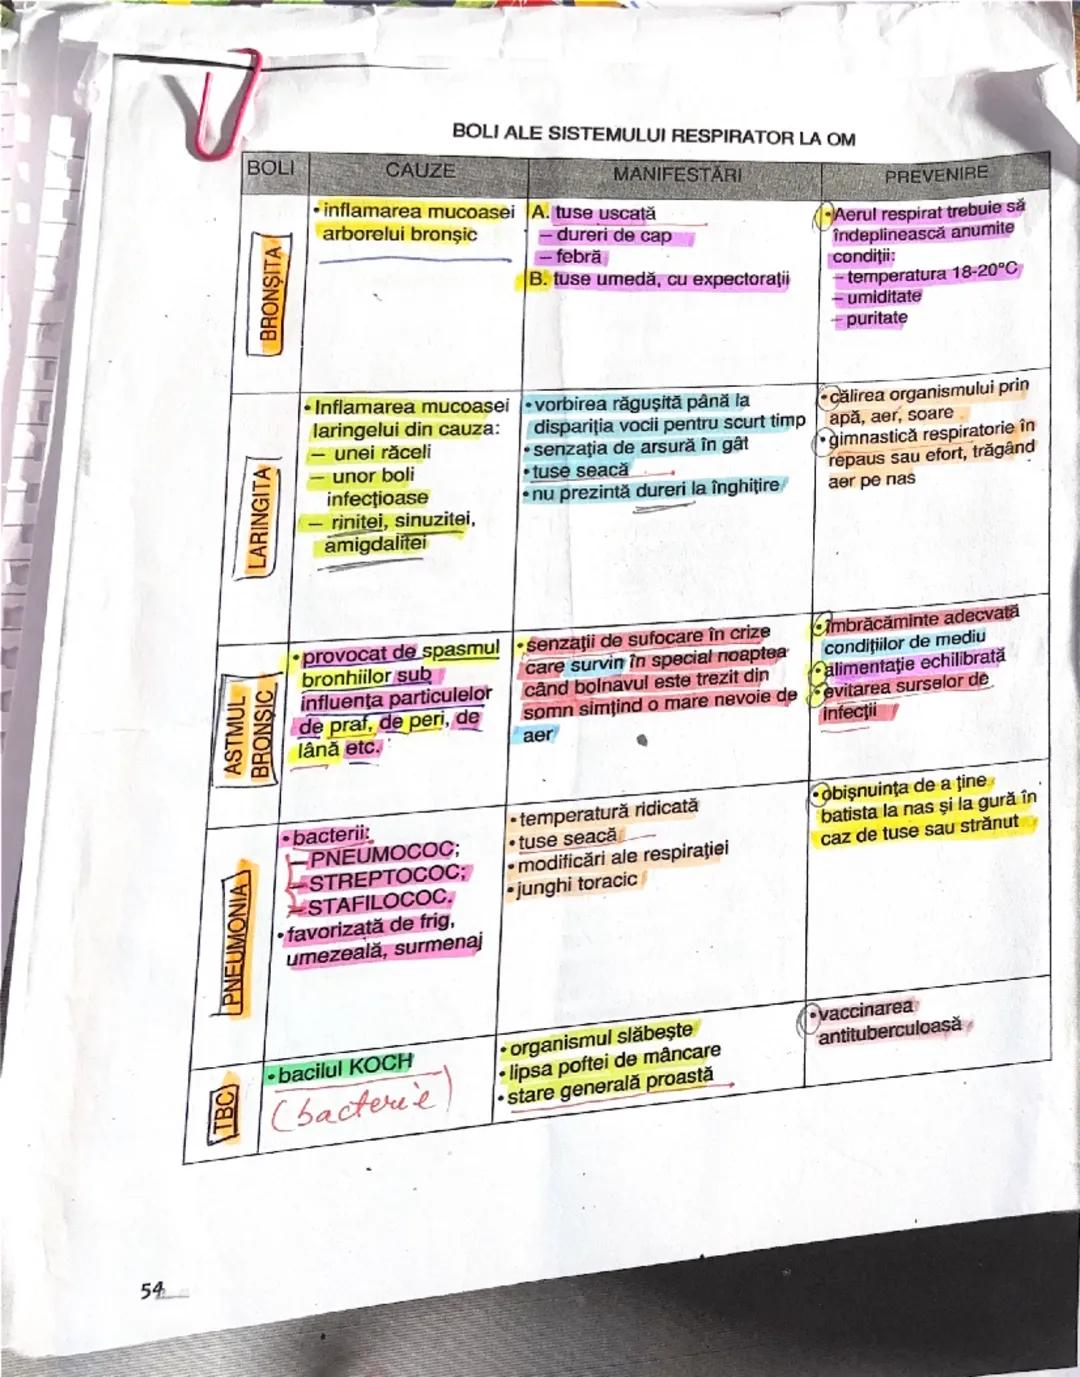 BOLI ALE SISTEMULUI RESPIRATOR LA OM
BOLI
CAUZE
MANIFESTĂRI
PREVENIRE
BRONȘITA
• inflamarea mucoasei
arborelui bronșic
A. tuse uscată
– dureri de cap
– febră
B. tuse umedă, cu expectorații
• Aerul respirat trebuie să
îndeplinească anumite
condiții:
– temperatura 18-20°C
– umiditate
– puritate
LARINGITA
• Inflamarea mucoasei
laringelui din cauza:
– unei răceli
– unor boli
infecțioase
– rinitei, sinuzitei,
amigdalitei
• vorbirea răgușită până la
dispariția vocii pentru scurt timp
• senzația de arsură în gât
• tuse seacă
• nu prezintă dureri la înghițire
• călirea organismului prin
apă, aer, soare
• gimnastică respiratorie în
repaus sau efort, trăgând
aer pe nas
ASTMUL
BRONȘIC
• provocat de spasmul
bronhiilor sub
influența particulelor
de praf, de peri, de
lână etc.
• senzații de sufocare în crize
care survin în special noaptea
când bolnavul este trezit din
somn simțind o mare nevoie de
aer
• îmbrăcăminte adecvată
condițiilor de mediu
• alimentație echilibrată
• evitarea surselor de
infecții
PNEUMONIA
• bacterii:
– PNEUMOCOC;
– STREPTOCOC;
– STAFILOCOC.
• favorizată de frig,
umezeală, surmenaj
• temperatură ridicată
• tuse seacă
• modificări ale respirației
• junghi toracic
• obișnuința de a ține
batista la nas și la gură în
caz de tuse sau strănut
TBC
• bacilul KOCH
(bacterie)
• organismul slăbește
• lipsa poftei de mâncare
• stare generală proastă
• vaccinarea
antituberculoasă
54